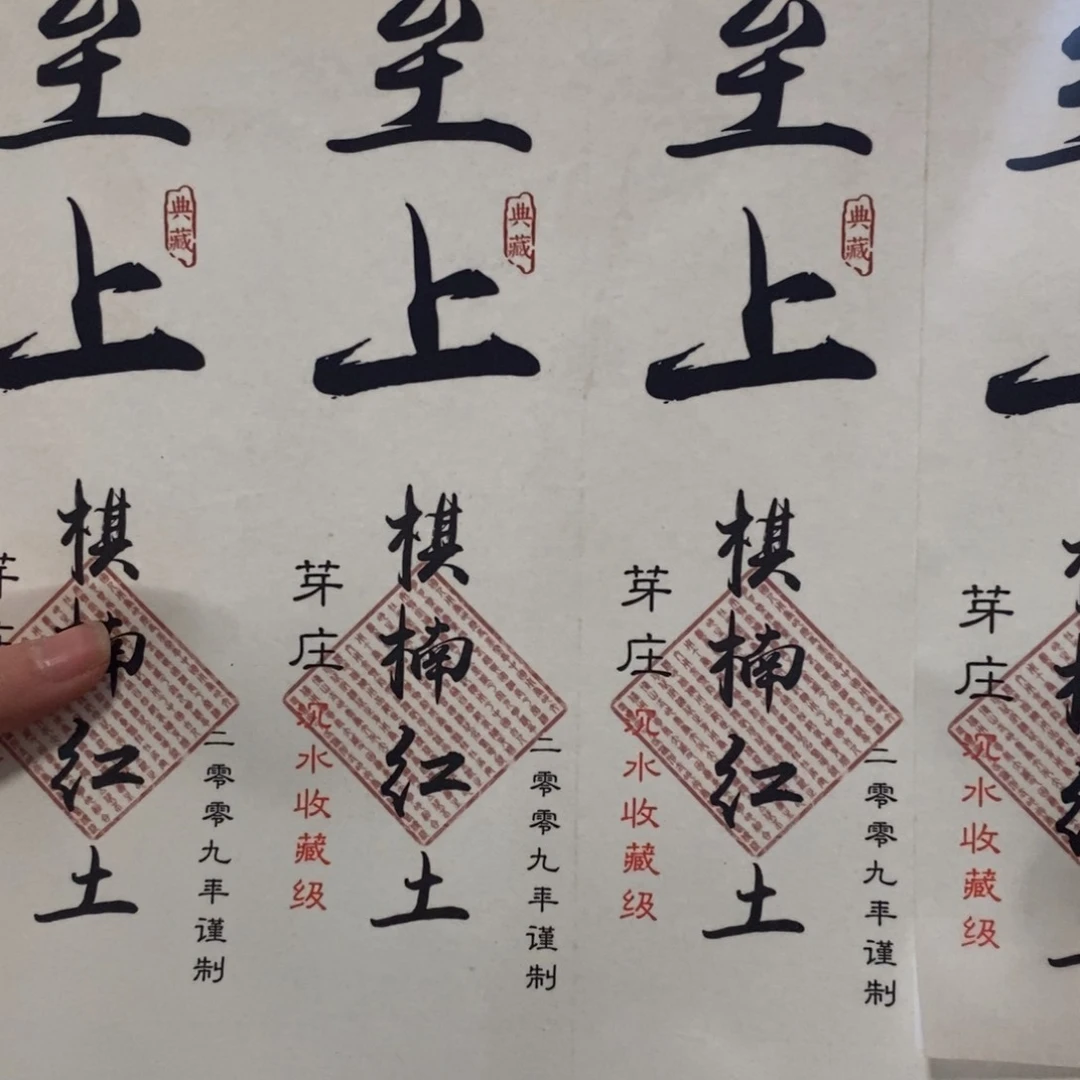 至上
典藏
棋楠红土
二零零九年谨制
至上
典藏
芽庄
棋楠红土
沉水收藏级
二零零九年谨制
至上
典藏
芽庄
棋楠红土
沉水收藏级
二零零九年谨制
芽庄
沉水收藏级